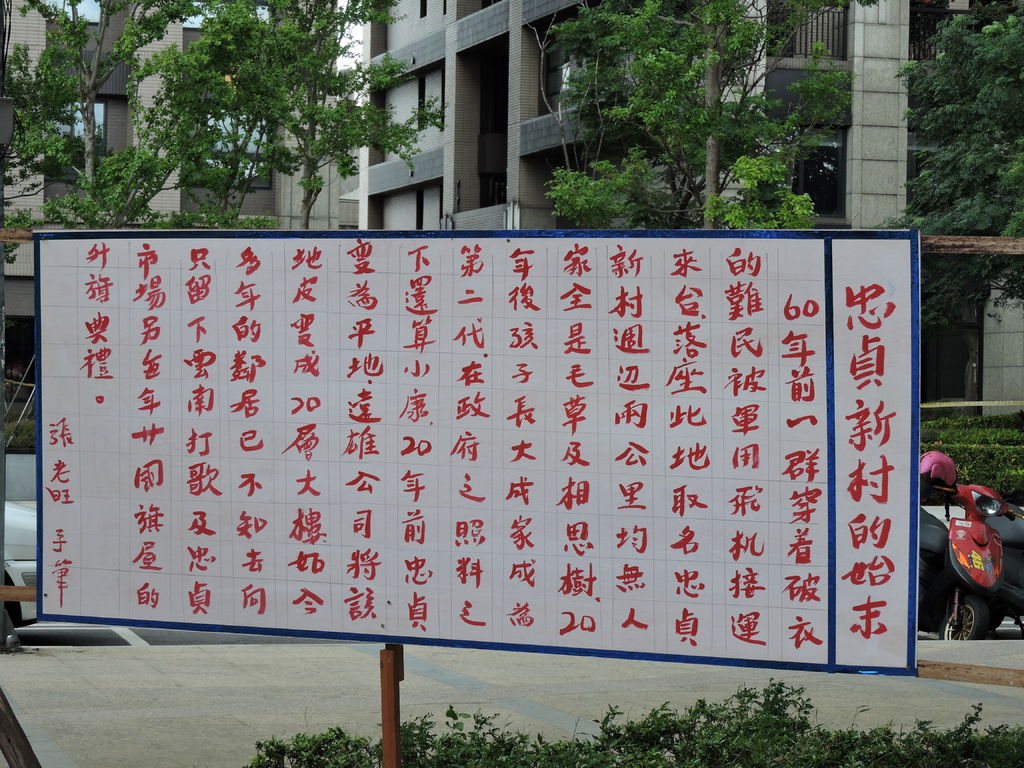 忠貞新村的始末
60年前一群穿着破衣
的難民被軍用飛机接運
來台.落座此地取名忠貞
新村週辺兩公里均無人
家全是毛草及相思樹.20
年後孩子長大成家成為
第二代.在政府之照料之
下還算小康.20年前忠貞
變為平地.達雄公司將該
地皮變成20層大樓.如今
多年的鄰居已不知去向
只留下雲南打歌及忠貞
市場另每年廿國旗屋的
升旗典禮。
張老旺 手筆